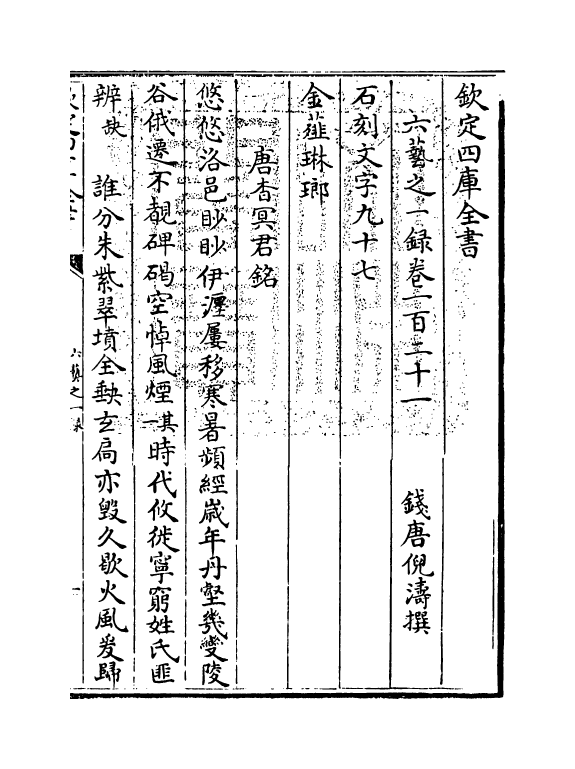 欽定四庫全書
六藝之一録卷一百二十一
錢唐倪濤撰
石刻文字九十七
金薤琳瑯
唐杳冥君銘
悠悠洛邑眇眇伊瀍屢移寒暑頻經嵗年丹壑幾變陵
谷俄遷不覩碑碣空悼風煙其一時代攸徙寧窮姓氏匪
辨缺誰分朱紫翠墳全缺玄扃亦毁久歇火風爰歸
六藝之一録
一